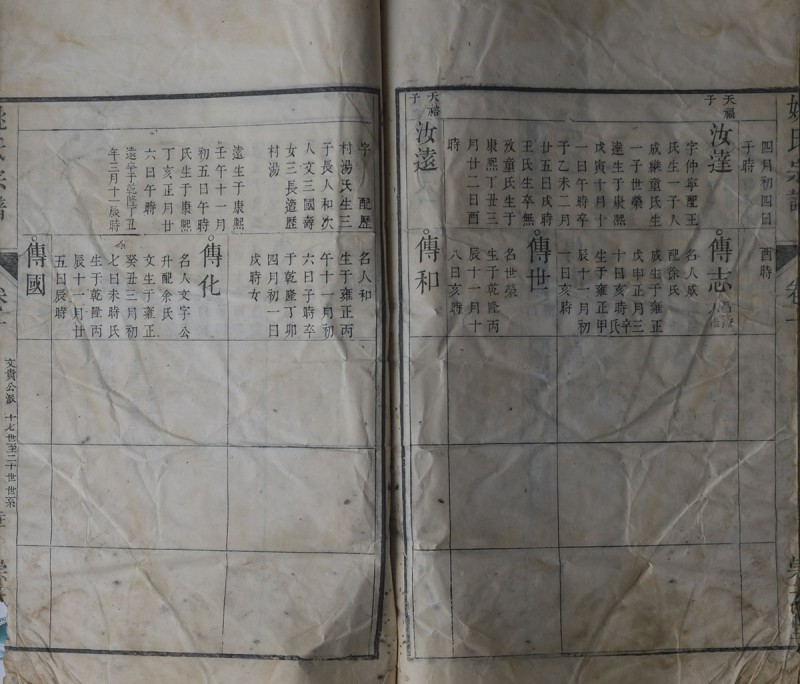 姚氏宗譜
四月初四日
子時
酉時
天福
子
汝達
字仲寧配王
氏生一子人
咸繼童氏生
一子世榮
達生于康熙
戊寅十月十
一日午時卒
子乙未二月
廿五日戌時
王氏生卒無
攷童氏生于
康熙丁丑三
月廿二日酉
時
傳志
名人咸
配徐氏
咸生于雍正
戊申正月三
十日亥時卒
生于雍正甲
辰十一月初
一日亥時
傳世
名世榮
生于乾隆丙
辰十一月十
八日亥時
天禧
子
汝遠
傳和
字 配歷
村湯氏生三
子長人和次
人文三國壽
女三長適歷
村湯
遠生于康熙
壬午十一月
初五日午時
氏生于康熙
丁亥正月廿
六日午時
遠卒于乾隆丁丑
年三月十一辰時
名人和
生于雍正丙
午十一月初
六日子時卒
于乾隆丁卯
四月初一日
戌時女
傳化
名人文字公
升配余氏
文生于雍正
癸丑三月初
七日未時氏
生于乾隆丙
辰十一月廿
五日辰時
傳國
姚氏宗譜
卷十
文貴公派 十七世至二十世世系